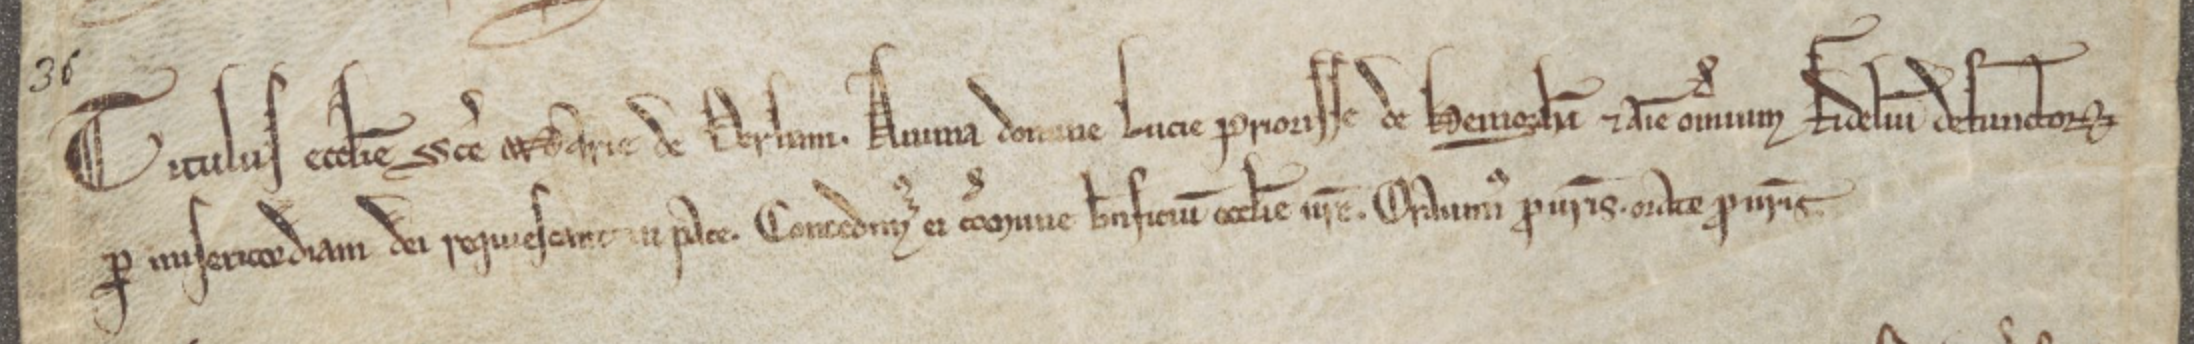 36
Titulus ecclie̅ Sce̅ Marie de Dersham. Anima domine Lucie priorisse de Heningh̅m ⁊ ai̅e omnium Fideliu̅ defunctoꝝ
ꝑ misericordiam dei requiescant in pace. Concedimꝰ ei comune bn̅ficiu̅ ecclie̅ nr̅e. Orauimꝰ ꝓ ur̅is. orate ꝓ nr̅is.